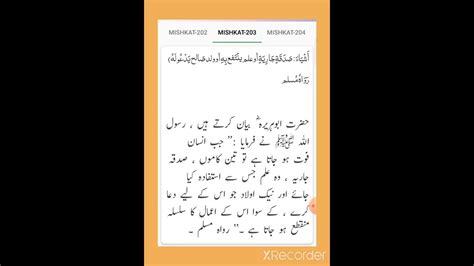 MISHKAT-202 MISHKAT-203 MISHKAT-204
أَشْيَاءَ: صَدَقَةٍ جَارِيَةٍ أَوْ عِلْمٍ يُنْتَفَعُ بِهِ أَوْ وَلَدٍ صَالِحٍ يَدْعُو لَهُ)
رَوَاهُ مُسلم
حضرت ابوہریرہ ؓ بیان کرتے ہیں ، رسول
اللہ ﷺ نے فرمایا :’’ جب انسان
فوت ہو جاتا ہے تو تین کاموں ، صدقہ
جاریہ ، وہ علم جس سے استفادہ کیا
جائے اور نیک اولاد جو اس کے لیے دعا
کرے ، کے سوا اس کے اعمال کا سلسلہ
منقطع ہو جاتا ہے ۔‘‘ رواہ مسلم ۔
XRecorder